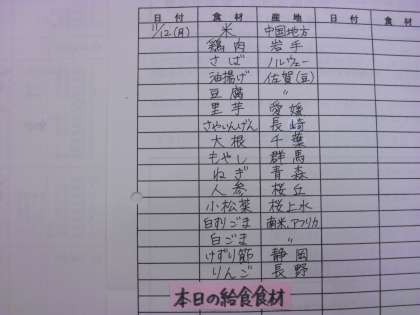 日付 食材 産地 日付 食材
11/12(月) 米 中国地方
鶏肉 岩手
さば ノルウェー
油揚げ 佐賀(豆)
豆腐 〃
里芋 愛媛
さやいんげん 長崎
大根 千葉
もやし 群馬
ねぎ 青森
人参 桜丘
小松菜 桜上水
白すりごま 南米、アフリカ
白ごま 〃
けずり節 静岡
りんご 長野
本日の給食食材